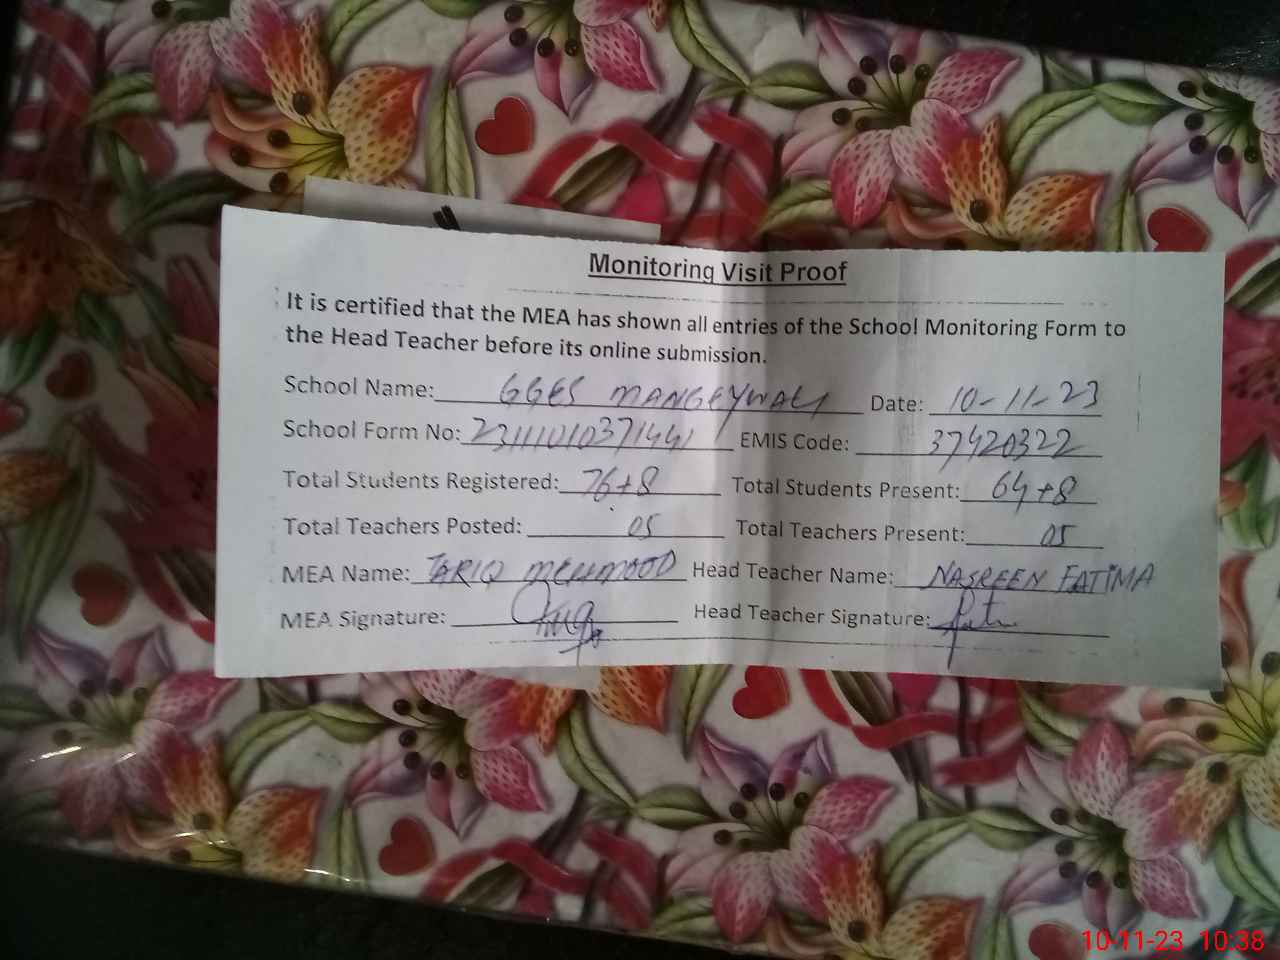 Monitoring Visit Proof
It is certified that the MEA has shown all entries of the School Monitoring Form to
the Head Teacher before its online submission.
School Name: GGES MANGEYWALI Date: 10-11-23
School Form No: 23111010371441 EMIS Code: 37420322
Total Students Registered: 76+8 Total Students Present: 64+8
Total Teachers Posted: 05 Total Teachers Present: 05
MEA Name: TARIQ MEHMOOD Head Teacher Name: NASREEN FATIMA
MEA Signature: Head Teacher Signature:
10-11-23 10:38